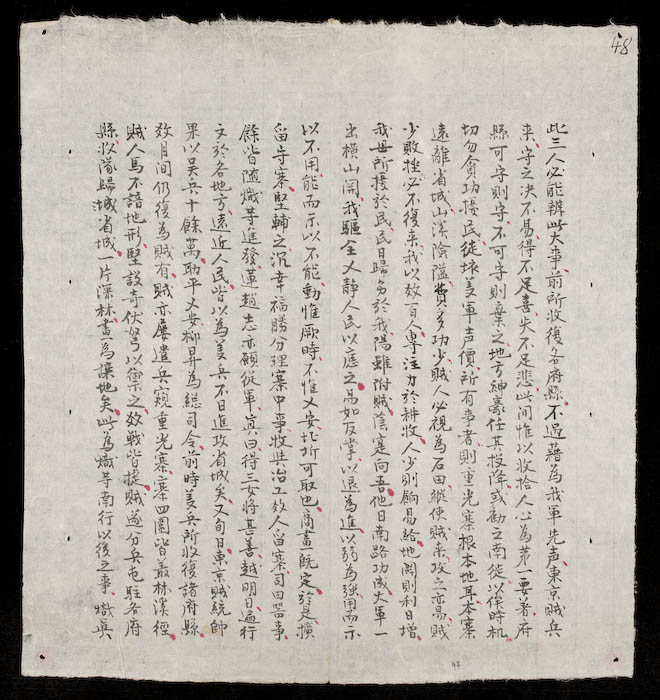 48
此三人必能辨此大事、前所收復各府縣、不過藉為我軍先声、東京賊兵
來、守之決不易、得不足喜、失不足悲、此間惟以收拾人心為第一要著、府
縣可守則守、不可守則棄之、地方紳豪任其投降、或勸之南徙、以俟時机
切勿貪功擾民、徒壞義軍声價、所有事者、則重光寨根本地耳、本寨
遠離省城、山深險隘、費多功少、賊人必視為石田、縱使賊來攻之亦易、賊
少敗挫、必不復來、我以数百人專注力於耕收、人少則餉易給、地闊則利日增
我毋所擾於民、民日歸多於我、陽雖附賊、陰寔向吾、他日南路功成、大軍一
出橫山関、我驅全乂靜人民以應之、易如反掌、以退為進、以弱為強、用而示
以不用、能而示以不能、動惟厥時、不惟乂安、北圻可取也、商畫既定、於是擴
留守寨、堅輔之、沉幸福勝分理寨中事、牧共冶工数人留寨司器事
餘皆隨熾等進發、蓮趙志亦願從軍、真曰得三女將甚善、越明日遍行
文於各地方、遠近人民、皆以為義兵不日進攻省城矣、又旬日東京賊統帥
果以吳兵十餘萬助平乂安、柳昇為總司令、前時義兵所收復諸府縣
数月間仍復為賊有、賊亦屢遣兵窺重光寨、寨四圍皆叢林溪徑
賊人馬不諳地形、堅設奇伏弩以禦之、数戰皆捷、賊遂分兵屯駐各府
縣、收隊歸城、省城一片深林、畫為讓地矣、此為熾等南行以後之事、熾真